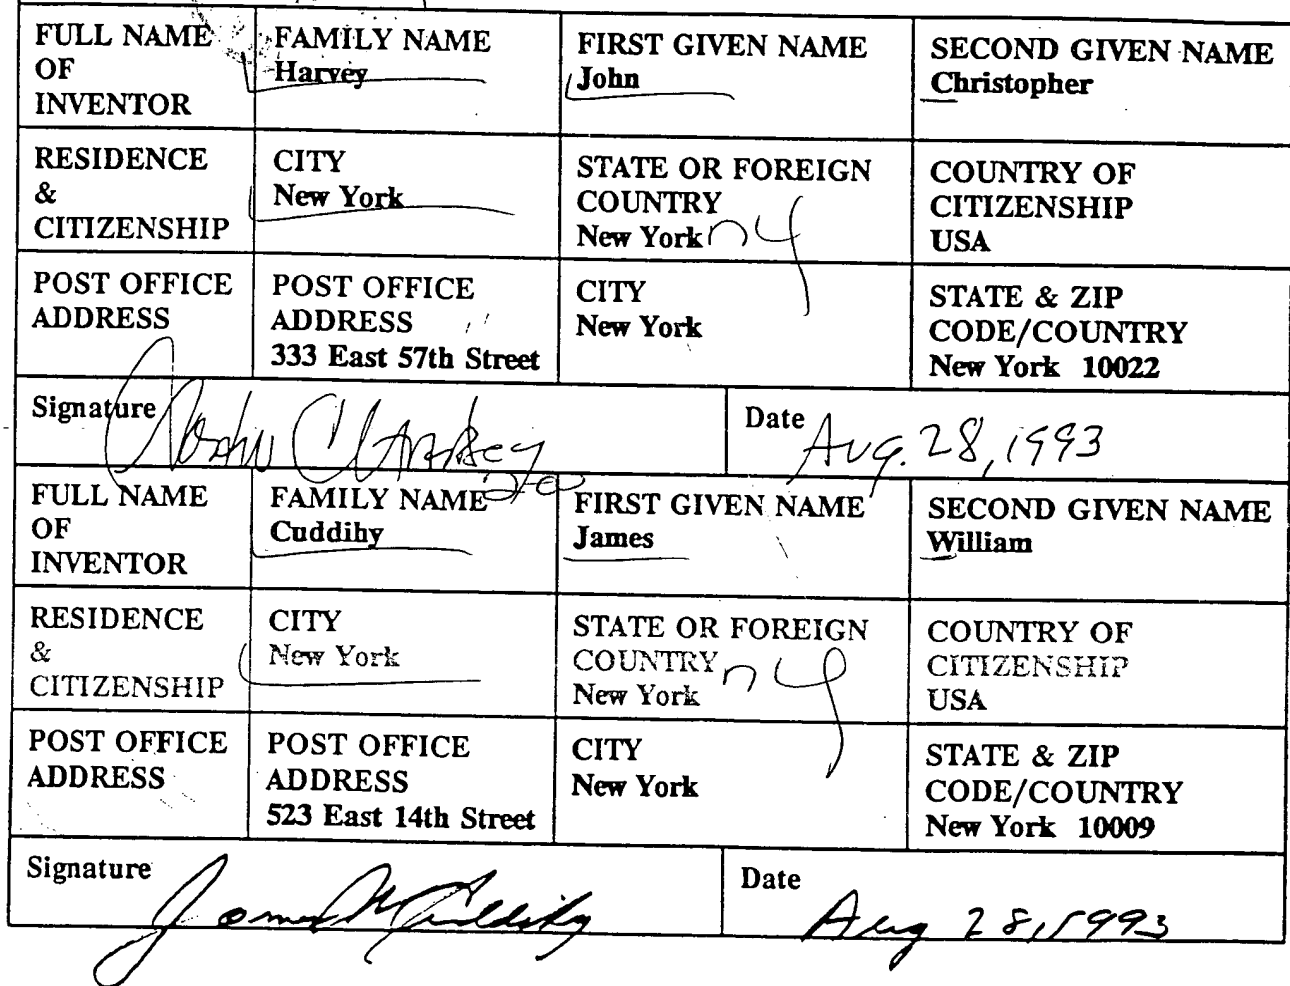 FULL NAME OF INVENTOR
FAMILY NAME
Harvey
FIRST GIVEN NAME
John
SECOND GIVEN NAME
Christopher
RESIDENCE & CITIZENSHIP
CITY
New York
STATE OR FOREIGN COUNTRY
New York ny
COUNTRY OF CITIZENSHIP
USA
POST OFFICE ADDRESS
POST OFFICE ADDRESS
333 East 57th Street
CITY
New York
STATE & ZIP CODE/COUNTRY
New York 10022
Signature John C Harvey
Date Aug. 28, 1993
FULL NAME OF INVENTOR
FAMILY NAME
Cuddihy
FIRST GIVEN NAME
James
SECOND GIVEN NAME
William
RESIDENCE & CITIZENSHIP
CITY
New York
STATE OR FOREIGN COUNTRY
New York ny
COUNTRY OF CITIZENSHIP
USA
POST OFFICE ADDRESS
POST OFFICE ADDRESS
523 East 14th Street
CITY
New York
STATE & ZIP CODE/COUNTRY
New York 10009
Signature James W Cuddihy
Date Aug 28, 1993